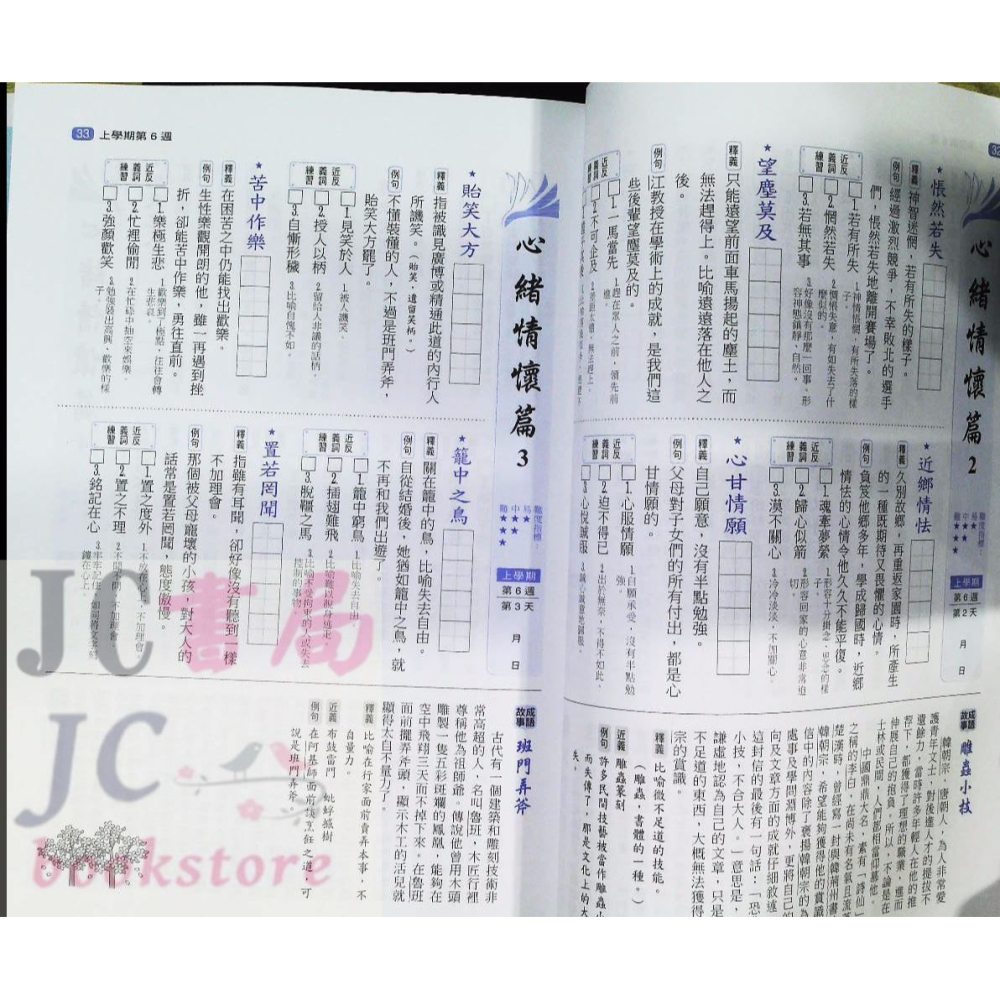 32
心緒情懷篇 2
難度指標：
易★
中★★
難★★★
上學期
第6週
第2天
月 日
★悵然若失
釋義 神智迷惘，若有所失的樣子。
例句 經過激烈競爭，不幸敗北的選手
們，悵然若失地離開賽場了。
近反義詞練習
□1.若有所失
□2.惘然若失
□3.若無其事
1.神情恍惚，有所失落的樣
子。
2.悵惘失意，有如失去了什
麼似的。
3.好像沒有那麼一回事。形
容神態鎮靜、自然。
★望塵莫及
釋義 只能遠望前面車馬揚起的塵土，而
無法趕得上。比喻遠遠落在他人之
後。
例句 江教授在學術上的成就，是我們這
些後輩望塵莫及的。
近反義詞練習
□1.一馬當先
□2.不可企及
1.趕在眾人之前，領先前
進。
★近鄉情怯
釋義 久別故鄉，再重返家園時，所產生
的一種既期待又畏懼的心情。
例句 負笈他鄉多年，學成歸國時，近鄉
情怯的心情令他久久不能平復。
近反義詞練習
□1.魂牽夢縈
□2.歸心似箭
□3.漠不關心
1.形容十分掛念、思念的樣
子。
2.形容回家的心意非常迫
切。
3.冷冷淡淡，不加關心。
★心甘情願
釋義 自己願意，沒有半點勉強。
例句 父母對子女們的所有付出，都是心
甘情願的。
近反義詞練習
□1.心服情願
□2.迫不得已
□3.心悅誠服
1.自願承受，沒有半點勉
強。
2.出於無奈，不得不如此。
3.誠心誠意地歸服。
成語故事 雕蟲小技
韓朝宗，唐朝人，為人非常愛
護青年文士，對後進人才的提拔不
遺餘力，當時許多年輕人在他的推
荐下，都獲得了理想的職業，進而
伸展自己的抱負，所以，不論是在
士林或民間，人們都相當仰慕他。
中國鼎鼎大名，素有「詩仙」
之稱的李白，在尚未有名氣且流落
楚漢時，曾經寫一封與韓荊州書
韓朝宗，希望能夠獲得他的賞識
信中的內容除了褒揚韓朝宗的為
處事及學問淵博外，更將自己的
向及文章方面的成就仔細敘述
這封信的最後有一句話：「恐
小技，不合大人。」意思是，
謙虛地認為自己的文章，只是
不足道的東西，大概無法獲得
宗的賞識。
釋義 比喻微不足道的技能。
（雕蟲，書體的一種。）
近義 雕蟲篆刻
例句 許多民間技藝被當作雕蟲小
而失傳了，那是文化上的大
失。
33 上學期第6週
心緒情懷篇 3
難度指標：
易★
中★★
難★★★
上學期
第6週
第3天
月 日
★貽笑大方
釋義 指被識見廣博或精通此道的內行人
所譏笑。（貽笑，遺留笑柄。）
例句 不懂裝懂的人，不過是班門弄斧，
貽笑大方罷了。
近反義詞練習
□1.見笑於人
□2.授人以柄
□3.自慚形穢
1.被人譏笑。
2.留給人非議的話柄。
3.比喻自愧不如。
★苦中作樂
釋義 在困苦之中仍能找出歡樂。
例句 生性樂觀開朗的他，雖一再遇到挫
折，卻能苦中作樂，勇往直前。
近反義詞練習
□1.樂極生悲
□2.忙裡偷閒
□3.強顏歡笑
1.歡樂到了極點，往往會轉
生悲哀。
2.在忙碌中抽空來娛樂。
3.勉強裝出高興、歡樂的樣
子。
★籠中之鳥
釋義 關在籠中的鳥，比喻失去自由。
例句 自從結婚後，她猶如籠中之鳥，就
不再和我們出遊了。
近反義詞練習
□1.籠中窮鳥
□2.插翅難飛
□3.脫韁之馬
1.比喻失去自由
2.比喻難以脫身逃走。
3.比喻不受拘束的人或失去
控制的事物。
★置若罔聞
釋義 指雖有耳聞，卻好像沒有聽到一樣
不加理會。
例句 那個被父母寵壞的小孩，對大人的
話常是置若罔聞，態度傲慢。
近反義詞練習
□1.置之度外
□2.置之不理
□3.銘記在心
1.不放在心上，不加理會。
2.不聞不問，不加理會。
成語故事 班門弄斧
古代有一個建築和雕刻技術非
常高超的人，名叫魯班，木匠行裡
尊稱他為祖師爺。傳說他曾用木頭
雕製一隻五彩斑斕的鳳凰，能夠在
空中飛翔三天而不掉下來。在魯班
面前擺弄斧頭，顯示木工的活兒就
顯得太自不量力了。
釋義 比喻在行家面前賣弄本事，不
自量力。
近義 布鼓雷門 蚍蜉撼樹
例句 在阿基師面前談烹飪之道，可
說是班門弄斧。
JC書局
JC
bookstore